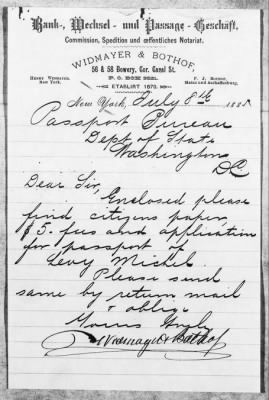 Bank-, Wechsel- und Passage-Geschäft.
Commission, Spedition und œffentliches Notariat.
WIDMAYER & BOTHOF,
56 & 58 Bowery, Cor. Canal St.
P. O. BOX
HENRY WIDMAYER,
New York.
F. J. BOTHOF,
Mainz und Aschaffenburg.
ETABLIRT 1870.
New York, July 8th 188
Passport Bureau
Dept of State
Washington
DC
Dear Sir,
Enclosed please
find citizens paper
$5. fees and application
for passport of
Levy Michel.
Please send
same by return mail
& oblige
Yours truly
Widmayer & Bothof